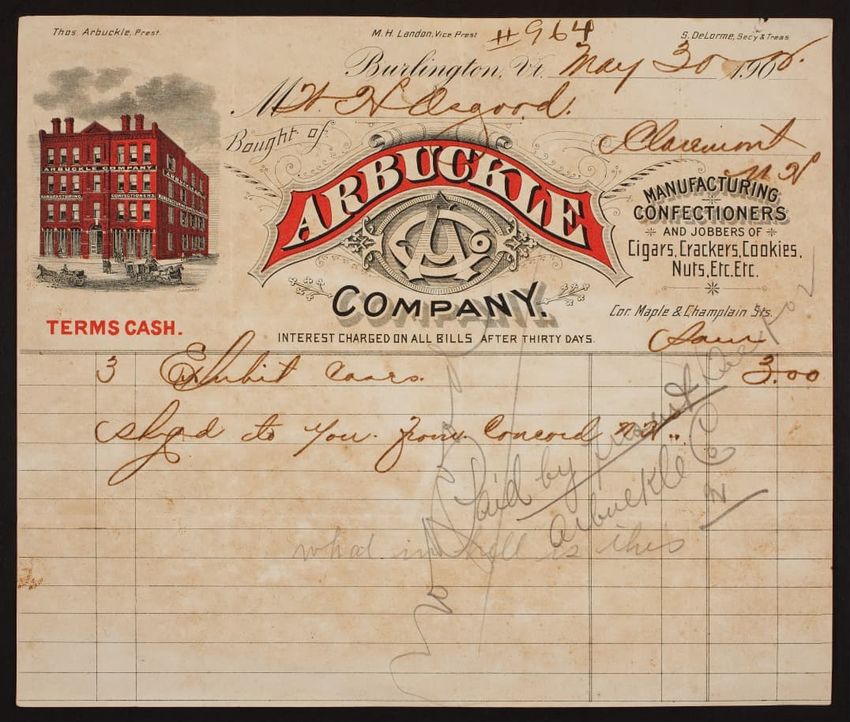 Thos. Arbuckle, Prest.
M. H. Landon, Vice Prest
S. DeLorme, Secy & Treas
#964
Burlington, Vt. May 30 190
M W H Osgood.
Bought of
Claremont
N H
ARBUCKLE COMPANY
MANUFACTURING CONFECTIONERS
ARBUCKLE
ACo
COMPANY.
MANUFACTURING
CONFECTIONERS
AND JOBBERS OF
Cigars, Crackers, Cookies,
Nuts, Etc. Etc.
Cor. Maple & Champlain Sts.
TERMS CASH.
INTEREST CHARGED ON ALL BILLS AFTER THIRTY DAYS.
3 Exhibit Cases. 3.00
Shpd to You from Concord N.H.
Paid by
Arbuckle Co
what in hell is this